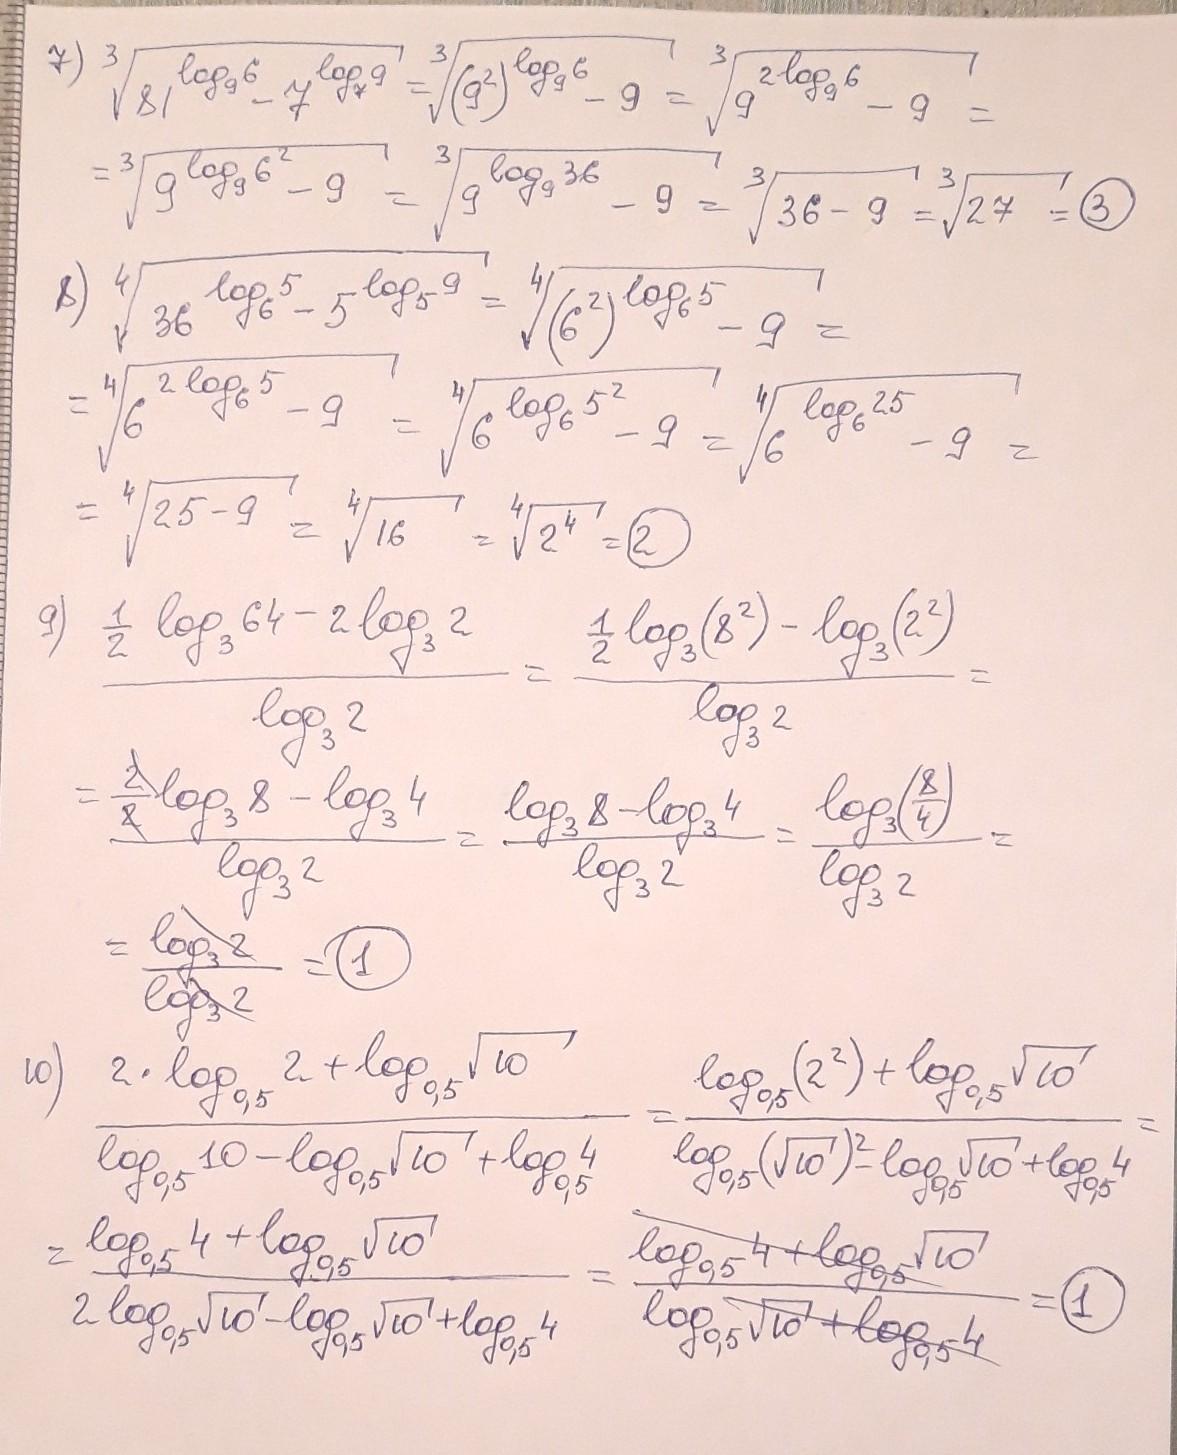 7) ∛(81^(log₉6) − 7^(log₇9)) = ∛((9²)^(log₉6) − 9) = ∛(9^(2log₉6) − 9) =
= ∛(9^(log₉6²) − 9) = ∛(9^(log₉36) − 9) = ∛(36 − 9) = ∛27 = 3
8) ∜(36^(log₆5) − 5^(log₅9)) = ∜((6²)^(log₆5) − 9) =
= ∜(6^(2log₆5) − 9) = ∜(6^(log₆5²) − 9) = ∜(6^(log₆25) − 9) =
= ∜(25 − 9) = ∜16 = ∜(2⁴) = 2
9) (1/2 log₃64 − 2log₃2)/(log₃2) = (1/2 log₃(8²) − log₃(2²))/(log₃2) =
= (2/2 log₃8 − log₃4)/(log₃2) = (log₃8 − log₃4)/(log₃2) = (log₃(8/4))/(log₃2) =
= (log₃2)/(log₃2) = 1
10) (2·log₀,₅2 + log₀,₅√10)/(log₀,₅10 − log₀,₅√10 + log₀,₅4) = (log₀,₅(2²) + log₀,₅√10)/(log₀,₅(√10)² − log₀,₅√10 + log₀,₅4) =
= (log₀,₅4 + log₀,₅√10)/(2log₀,₅√10 − log₀,₅√10 + log₀,₅4) = (log₀,₅4 + log₀,₅√10)/(log₀,₅√10 + log₀,₅4) = 1